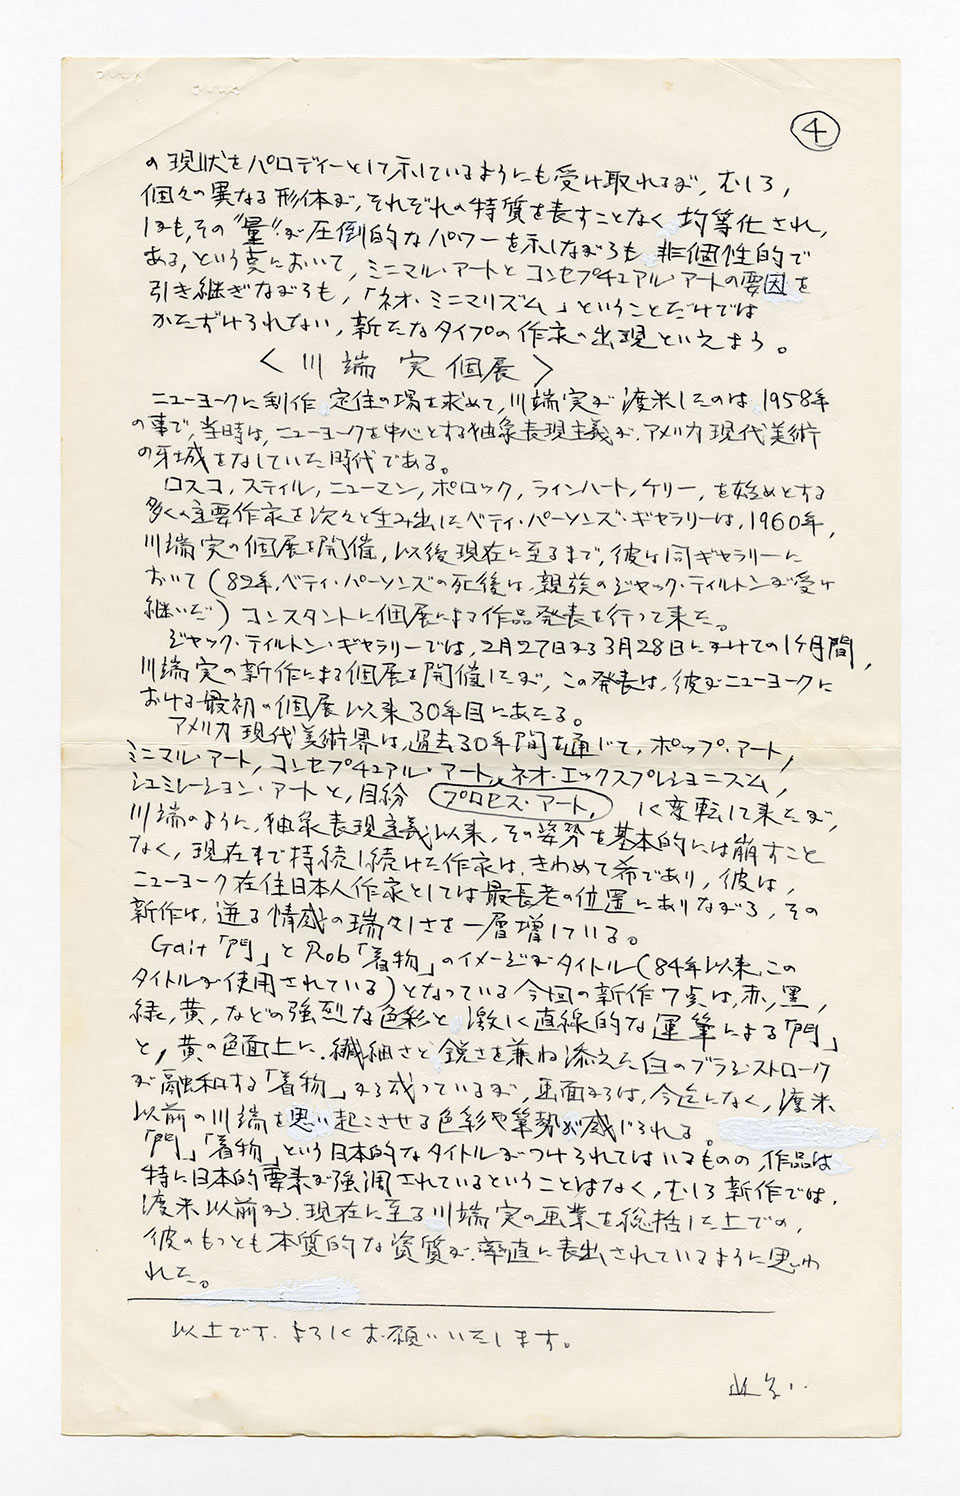 ④
の現状をパロディーとして示しているようにも受け取れるが、むしろ、
個々の異なる形体が、それぞれの特質を表すことなく均等化され、
しかも、その"量"が圧倒的なパワーを示しながらも非個性的で
ある、という点において、ミニマル・アートとコンセプチュアル・アートの要因を
引き継ぎながらも、「ネオ・ミニマリズム」ということだけでは
かたずけられない、新たなタイプの作家の出現といえよう。
〈川端実個展〉
ニューヨークに制作、定住の場を求めて、川端実が渡米したのは、1958年
の事で、当時は、ニューヨークを中心とする抽象表現主義が、アメリカ現代美術
の牙城をなしていた時代である。
ロスコ、スティル、ニューマン、ポロック、ラインハート、ケリー、を始めとする
多くの主要作家を次々と生み出したベティ・パーソンズ・ギャラリーは、1960年、
川端実の個展を開催、以後現在に至るまで、彼は同ギャラリーに
おいて(82年、ベティ・パーソンズの死後は、親族のジャック・ティルトンが受け
継いだ)コンスタントに個展による作品発表を行って来た。
ジャック・ティルトン・ギャラリーでは、2月27日から3月28日にかけての1ヶ月間、
川端実の新作による個展を開催したが、この発表は、彼がニューヨークに
おける最初の個展以来30年目にあたる。
アメリカ現代美術界は、過去30年間を通じて、ポップ・アート、
ミニマル・アート、コンセプチュアル・アート、ネオ・エックスプレショニズム、
シュミレーション・アートと、目紛 プロセス・アート、 しく変転して来たが、
川端のように、抽象表現主義以来、その姿勢を基本的には崩すこと
なく、現在まで持続し続けた作家は、きわめて希であり、彼は、
ニューヨーク在住日本人作家としては最長老の位置にありながら、その
新作は、迸る情感の瑞々しさを一層増している。
Gait「門」とRob「着物」のイメージがタイトル(84年以来、この
タイトルが使用されている)となっている今回の新作7点は、赤、黒、
緑、黄、などの強烈な色彩と、激しく直線的な運筆による「門」
と、黄の色面上に、繊細さと鋭さを兼ね添えた白のブラシ・ストローク
が融和する「着物」から成っているが、画面からは、今迄になく、渡米
以前の川端を思い起こさせる色彩や筆勢が感じられる。
「門」「着物」という日本的なタイトルがつけられてはいるものの、作品は
特に日本的要素が強調されているということはなく、むしろ新作では、
渡米以前から、現在に至る川端実の画業を総括した上での、
彼のもっとも本質的な資質が、率直に表出されているように思わ
れた。
以上です、よろしくお願いいたします。